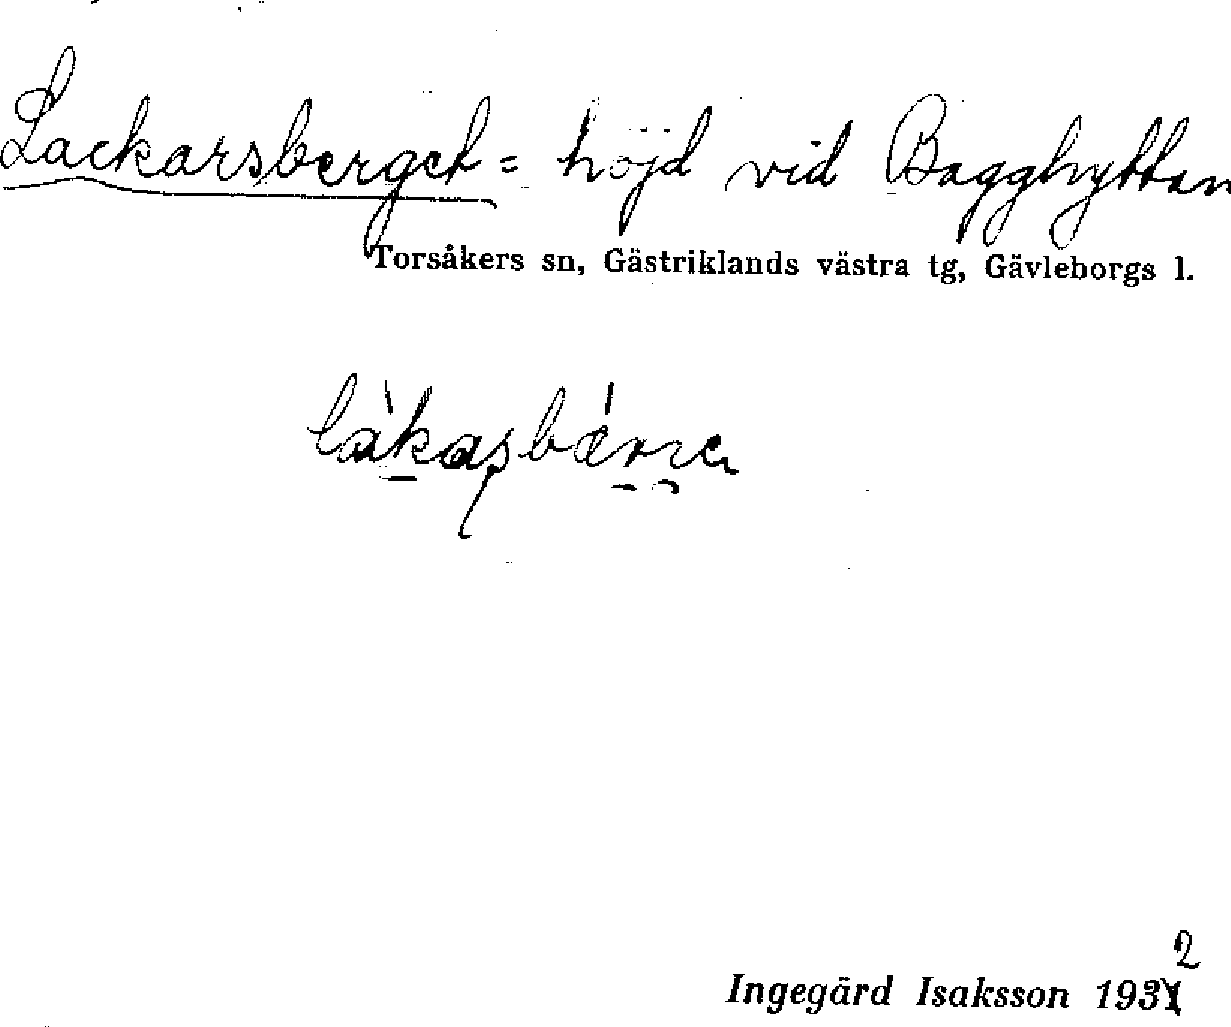 Lackarsberget = höjd vid Bagghyttan
Torsåkers sn, Gästriklands västra tg, Gävleborgs l.
2
Ingegärd Isaksson 1931